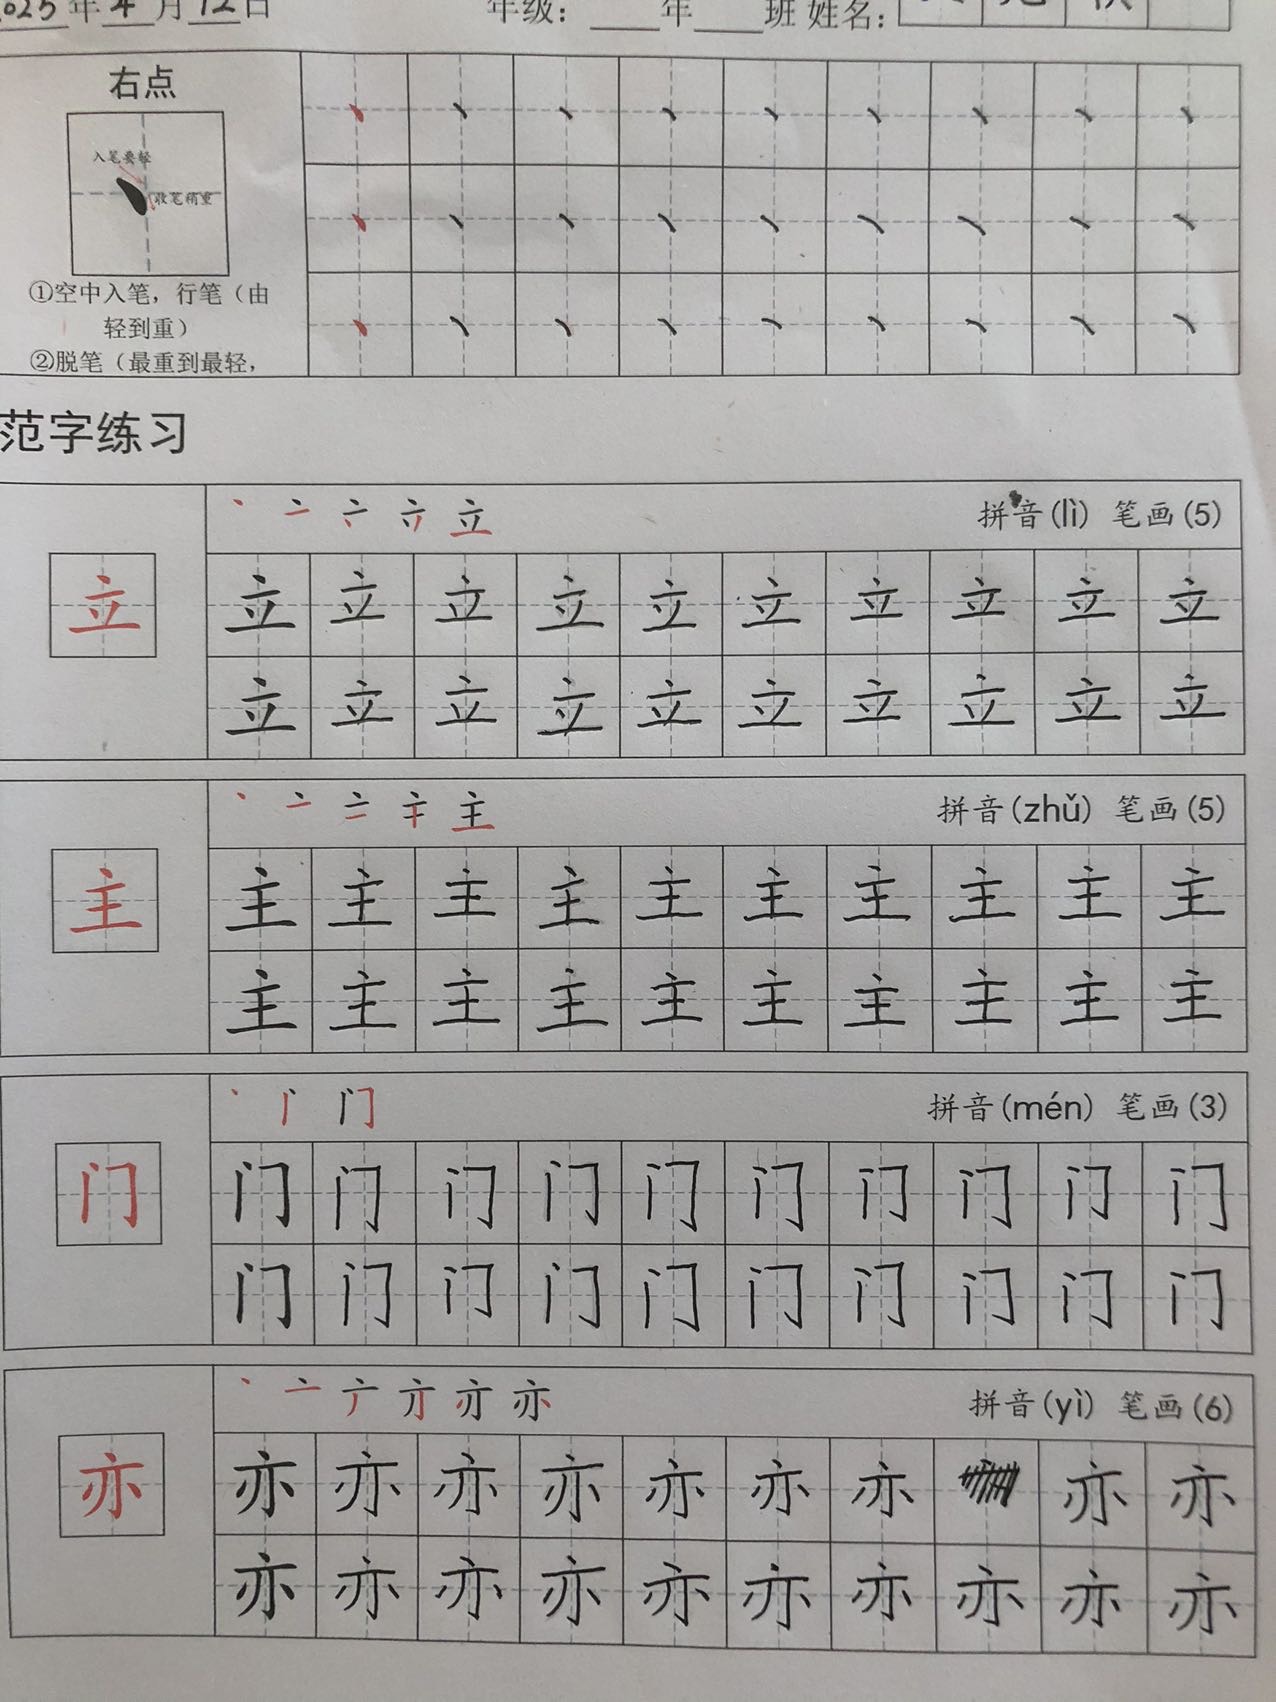 2025年4月12日 年级：____年____班 姓名：
右点
入笔要轻
收笔稍重
①空中入笔，行笔（由
轻到重）
②脱笔（最重到最轻，
范字练习
拼音(lì) 笔画(5)
立 立 立 立 立 立 立 立 立 立 立
立 立 立 立 立 立 立 立 立 立
拼音(zhǔ) 笔画(5)
主 主 主 主 主 主 主 主 主 主 主
主 主 主 主 主 主 主 主 主 主
拼音(mén) 笔画(3)
门 门 门 门 门 门 门 门 门 门 门
门 门 门 门 门 门 门 门 门 门
拼音(yì) 笔画(6)
亦 亦 亦 亦 亦 亦 亦 亦 亦 亦
亦 亦 亦 亦 亦 亦 亦 亦 亦 亦